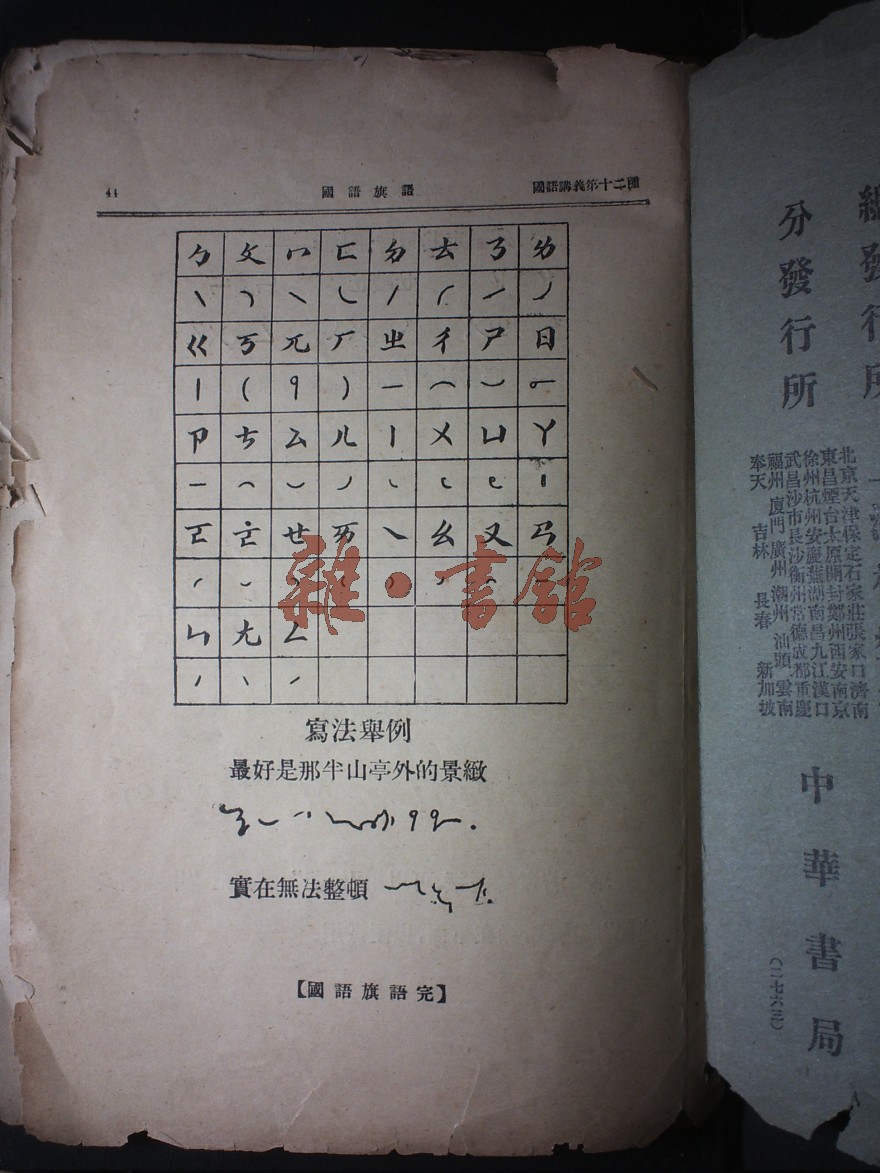 44 國語旗語 國語講義第十二種
ㄅ ㄆ ㄇ ㄈ ㄉ ㄊ ㄋ ㄌ
ㄍ ㄎ ㄫ ㄏ ㄓ ㄔ ㄕ ㄖ
ㄗ ㄘ ㄙ ㄦ 丨 ㄨ ㄩ ㄚ
ㄛ ㄜ ㄝ ㄞ ㄟ ㄠ ㄡ ㄢ
ㄣ ㄤ ㄥ
寫法舉例
最好是那半山亭外的景緻
實在無法整頓
【國語旗語完】
雜·書館
總發行所
分發行所
北京天津保定石家莊張家口濟南
東昌煙台太原開封鄭州西安南京
徐州杭州安慶蕪湖南昌九江漢口
武昌沙市長沙衡州常德成都重慶
福州廈門廣州潮州汕頭雲南
奉天 吉林 長春 新加坡
中華書局
(二七六三)